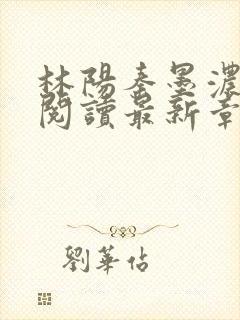 林陽秦墨濃
閱讀最新章
劉華佔